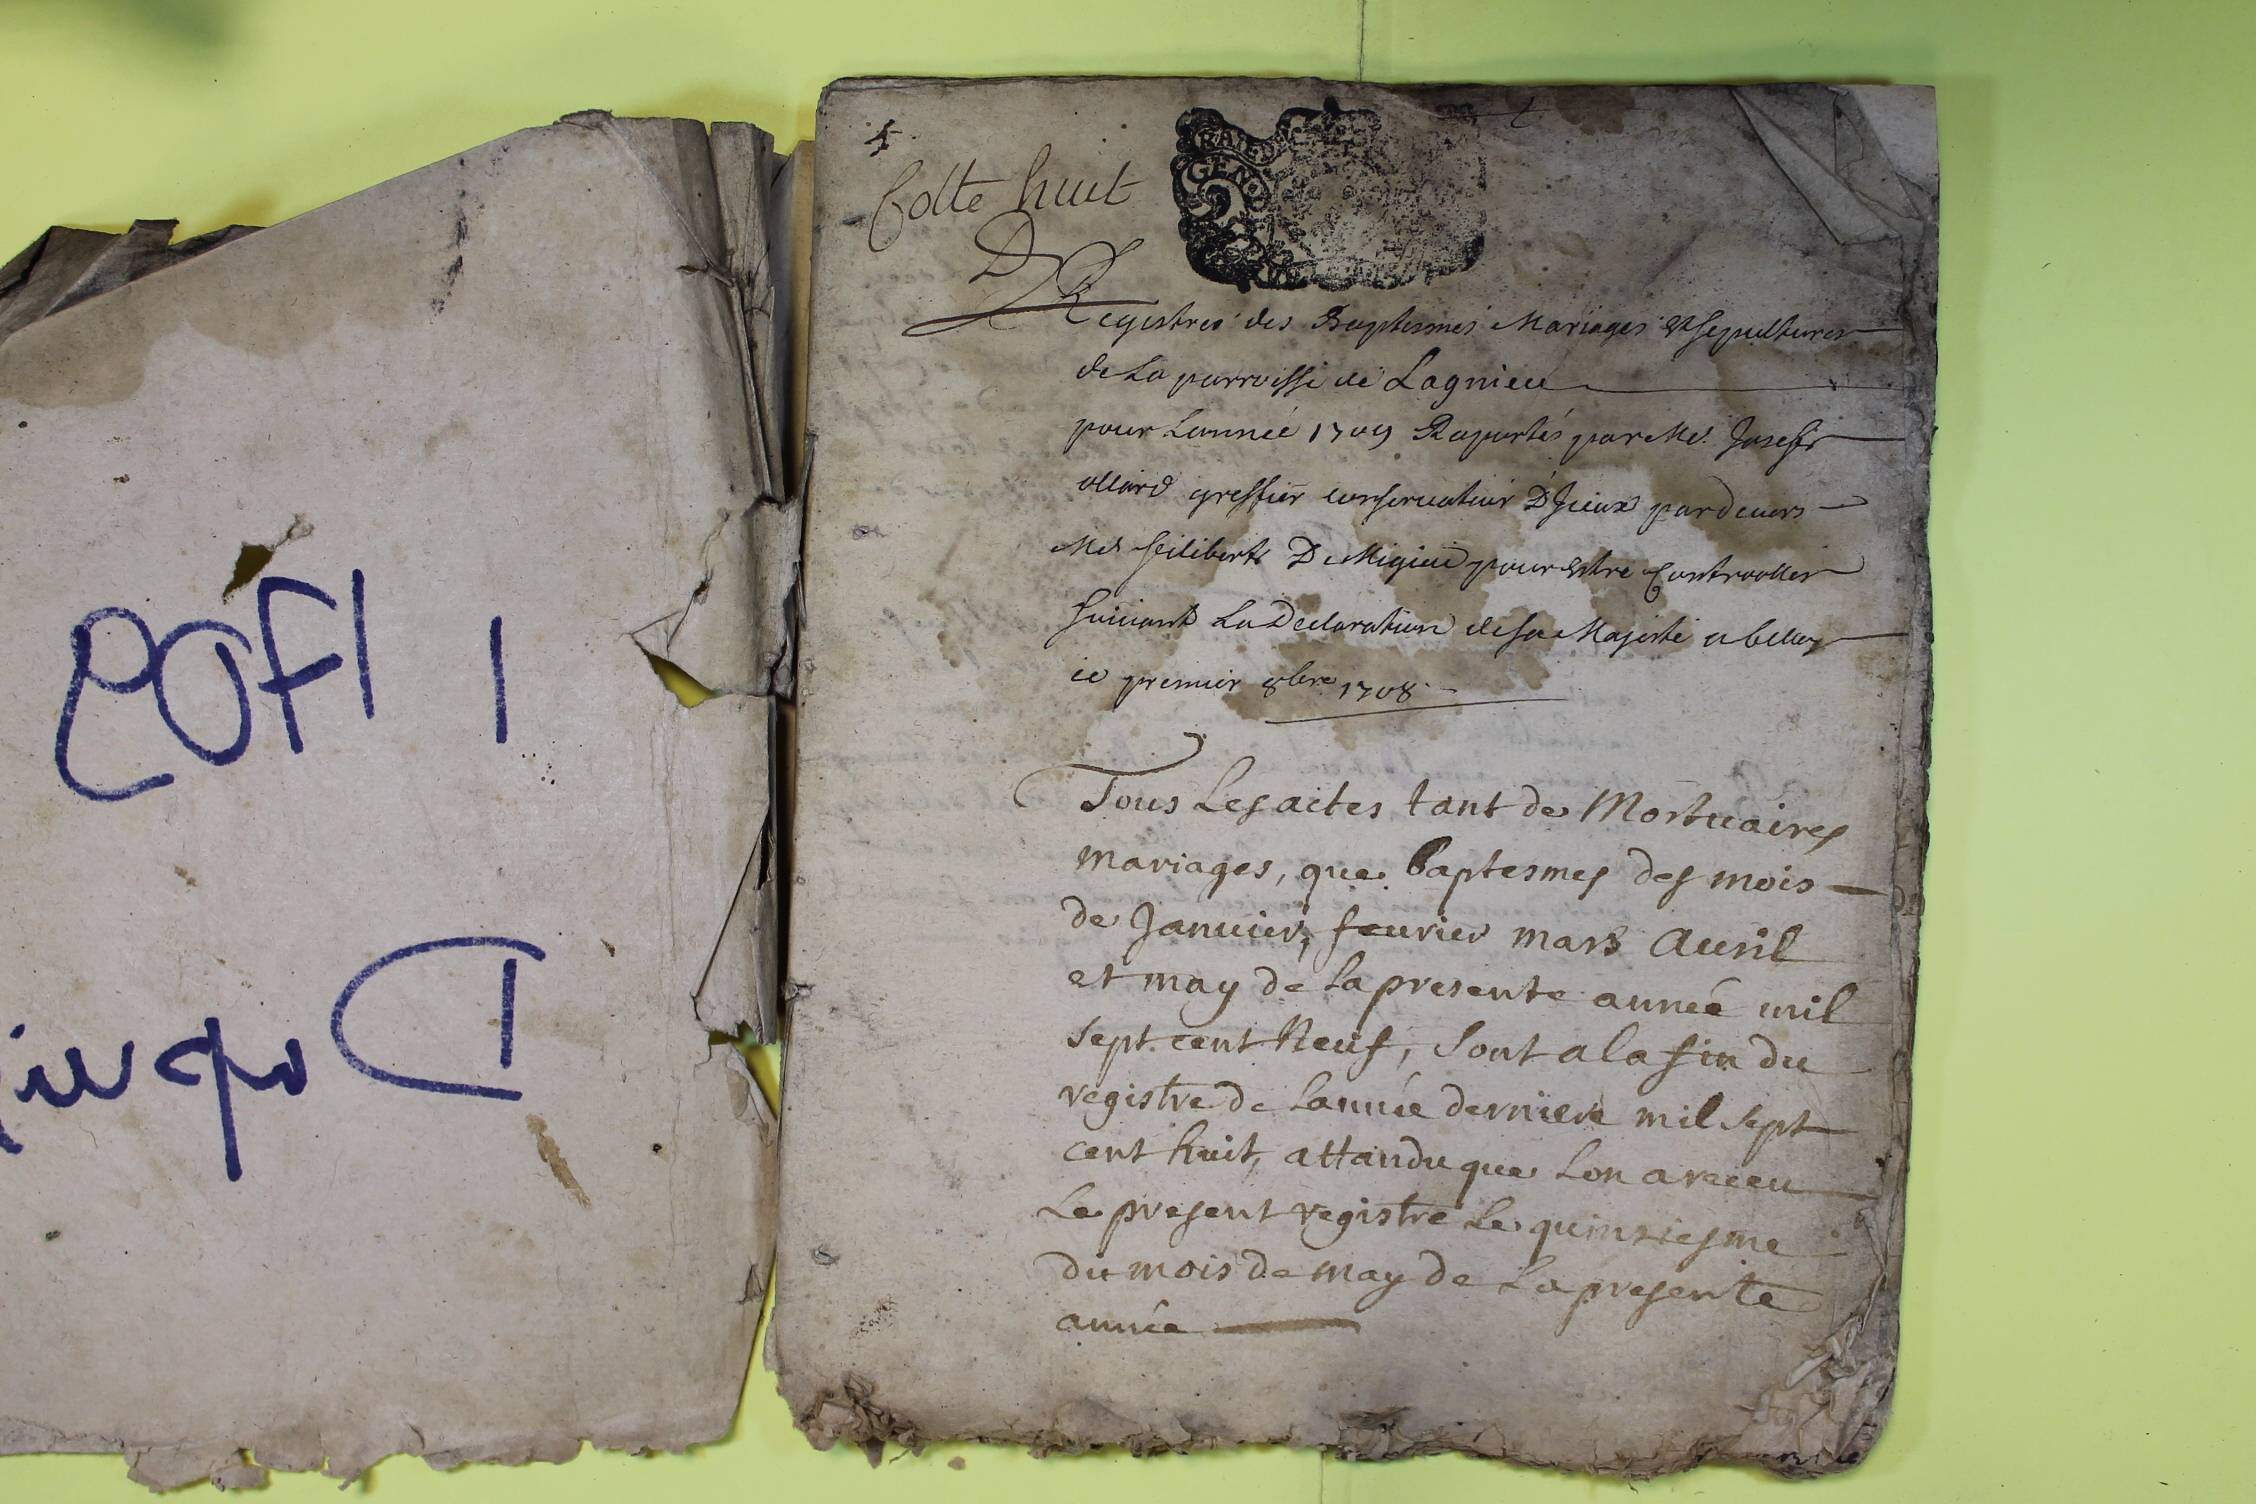 1
1703
Cotte huit
GENE
Registres des Baptesmes Mariages et sepultures
de La parroisse de Lagnieu
pour Lannée 1709 Raportés par Me. Joseph
ollard greffier conservateur D'Iceux pardevers
Me philibert De Migieu pour estre Controoller
suivant La Declaration de sa Majesté a belley
ce premier 8bre 1708
Tous Les actes tant de Mortuaires
mariages, que Baptesmes des mois
de Janvier, fevrier mars Avril
et may de La presente année mil
sept cent Neuf, sont a la fin du
registre de Lannée derniere mil sept
cent huit, attandu que Lon a receu
Le present registre Le quinziesme
du mois de may de La presente
année